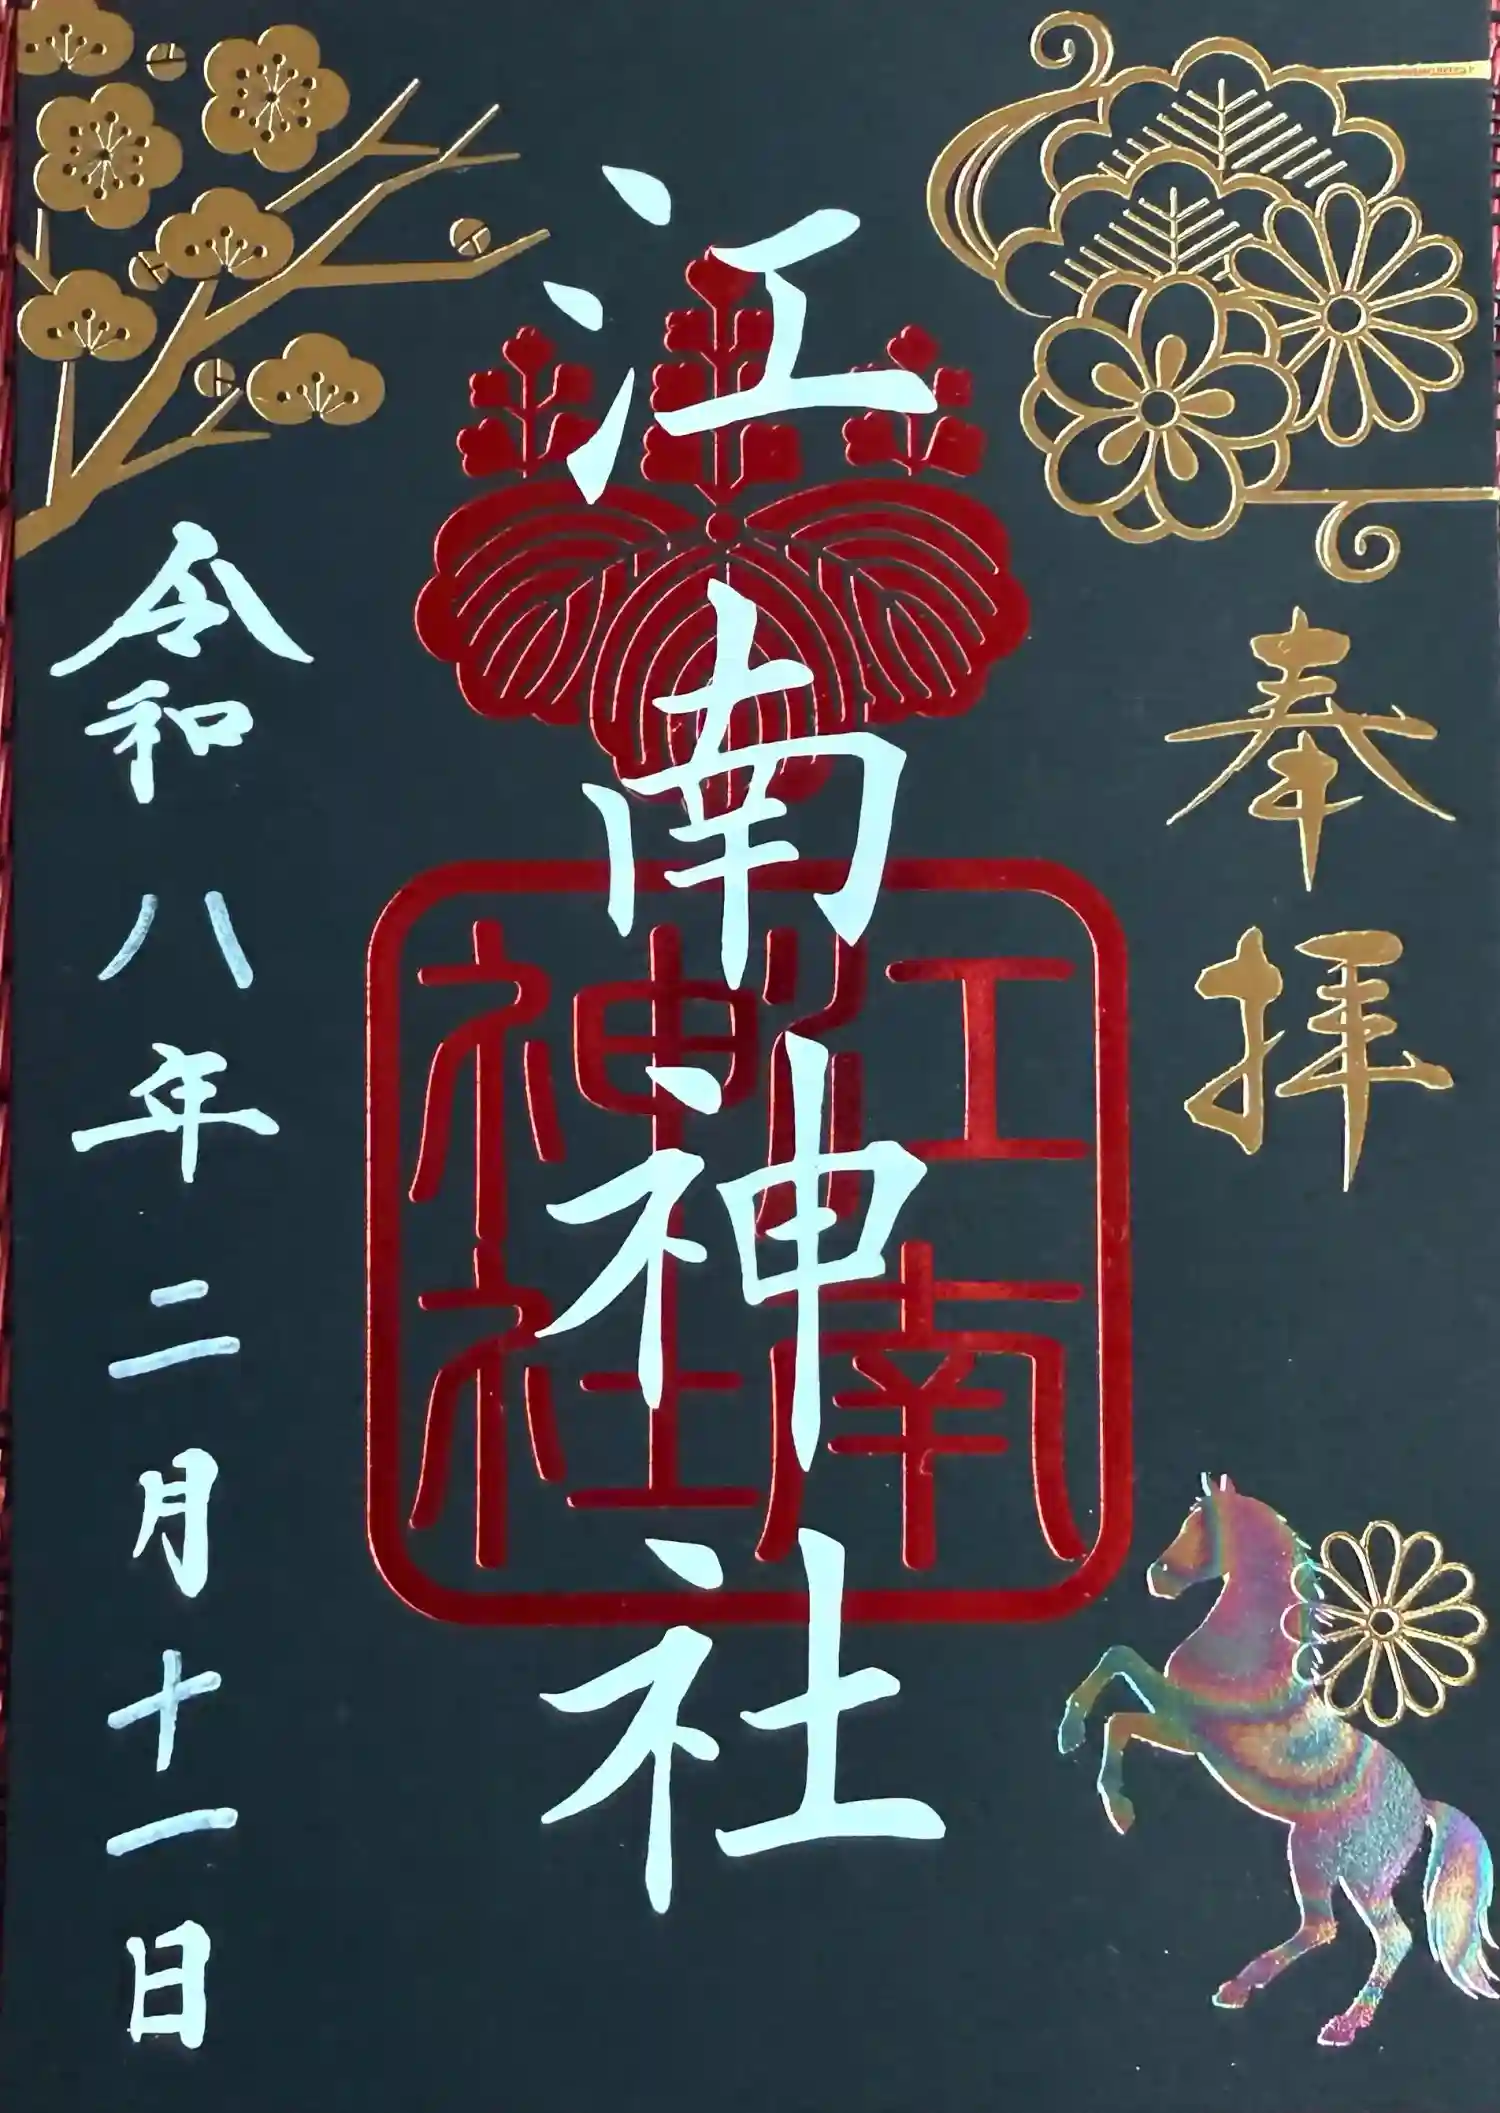 奉拝
江南神社
江南
神社
令和八年二月十一日